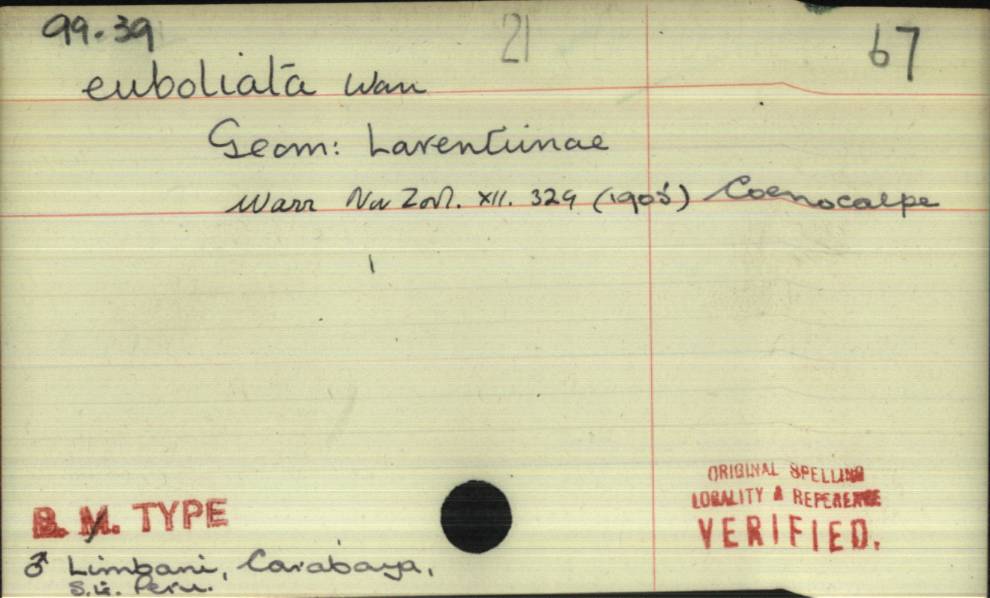 99.39
21
67
euboliata Warr
Geom: Larentiinae
Warr Nov Zool. XII. 329 (1905) Coenocalpe
B. M. TYPE
♂ Limbani, Carabaya,
S.E. Peru.
ORIGINAL SPELLING
LOCALITY & REFERENCE
VERIFIED.